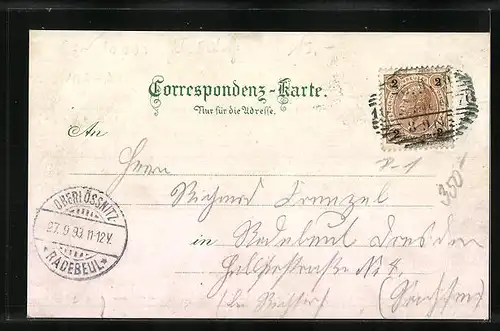 Correspondenz-Karte.
Nur für die Adresse.
2 2
An
Herrn
Richard Frenzel
in Radebeul Dresden
No 4.
(bei Richter) (Sachsen)
OBERLÖSSNITZ-
27.9.93.11-12V.
*RADEBEUL*
350-